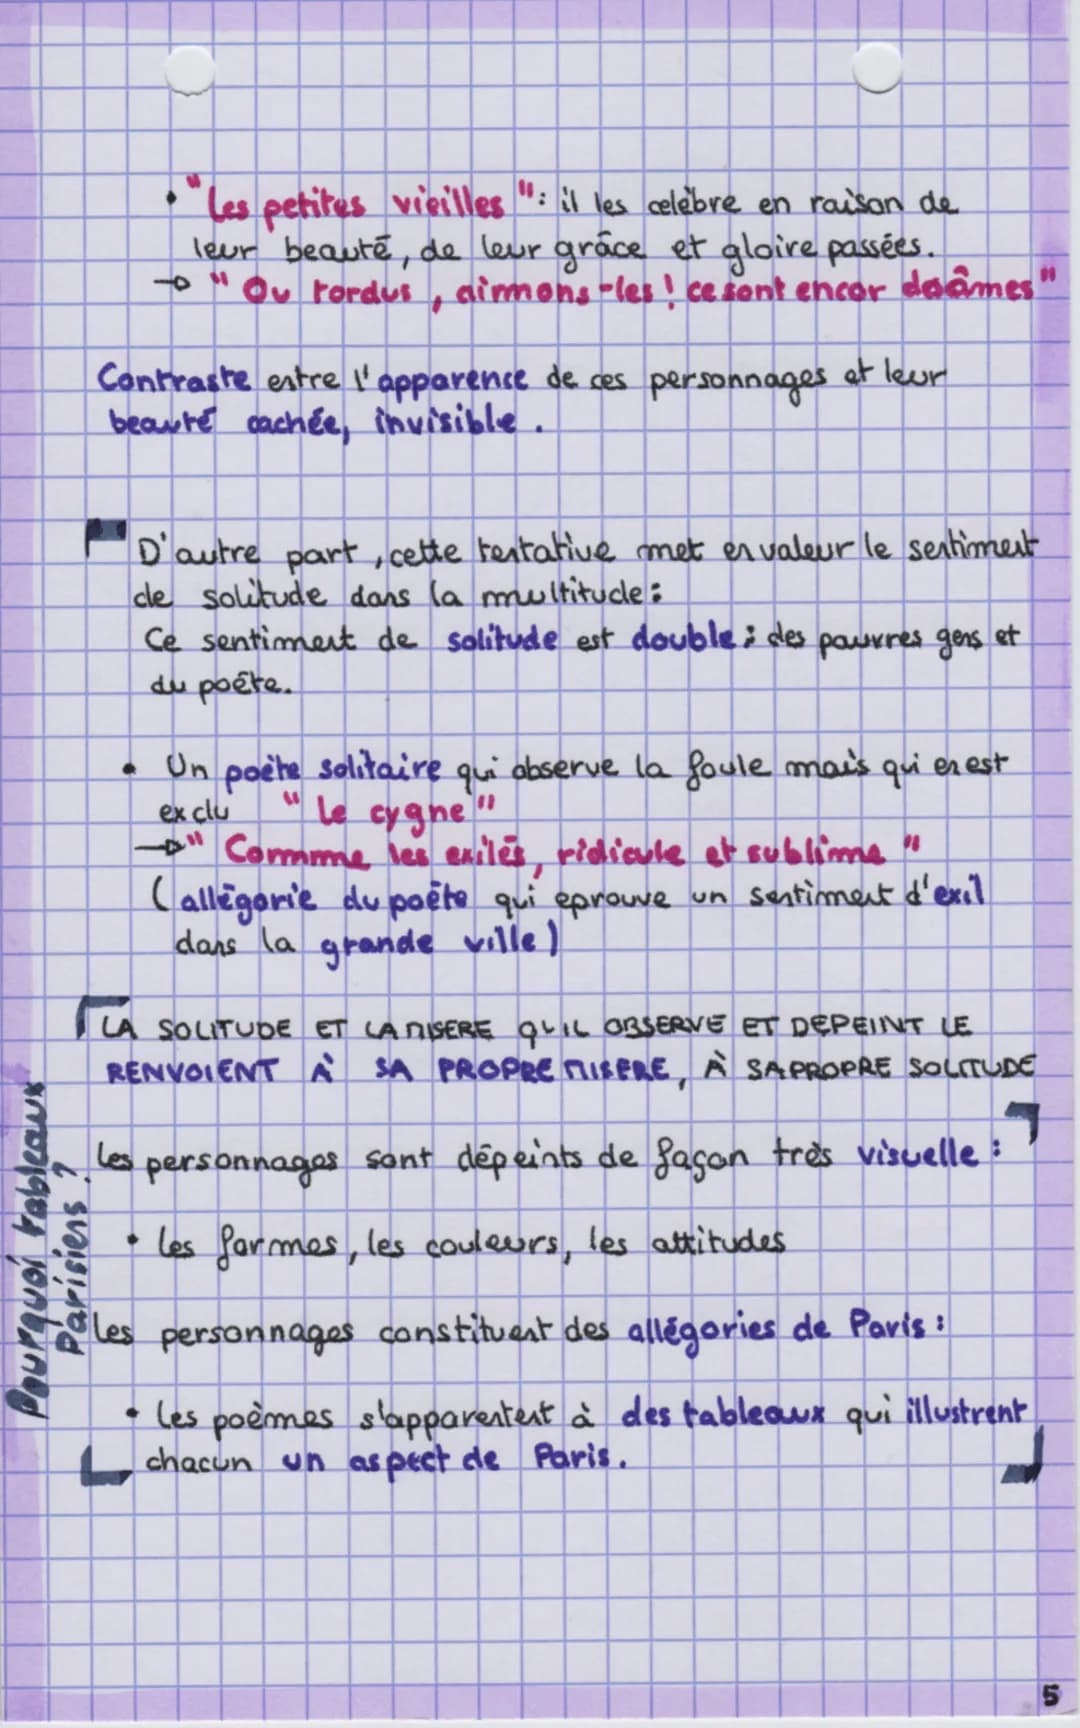 • "Les petites vieilles": il les celèbre en raison de
leur beauté, de leur grâce et gloire passées.
→ "Ou tordus, aimons-les! ce sont encor des âmes"
Contraste entre l'apparence de ces personnages et leur
beauté cachée, invisible.
D'autre part, cette tentative met en valeur le sentiment
de solitude dans la multitude:
Ce sentiment de solitude est double: des pauvres gens et
du poète.
• Un poète solitaire qui observe la foule mais qui en est
exclu "Le cygne"
→ "Comme les exilés, ridicule et sublime"
(allégorie du poète qui eprouve un sentiment d'exil
dans la grande ville)
LA SOLITUDE ET LA MISERE QU'IL OBSERVE ET DEPEINT LE
RENVOIENT À SA PROPRE MISERE, À SA PROPRE SOLITUDE
Pourquoi tableaux
Parisiens?
Les personnages sont dépeints de façon très visuelle:
• Les formes, les couleurs, les attitudes
Les personnages constituent des allégories de Paris:
• Les poèmes s'apparentent à des tableaux qui illustrent
chacun un aspect de Paris.
5